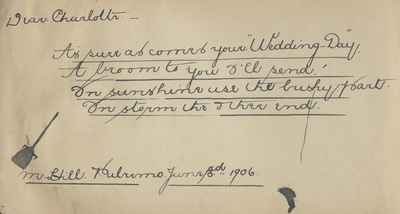 Dear Charlotte –
As sure as comes your "Wedding-Day,
A broom to you I'll send!
In sunshine use the bushy part.
In storm the other end.
June 3rd 1906.